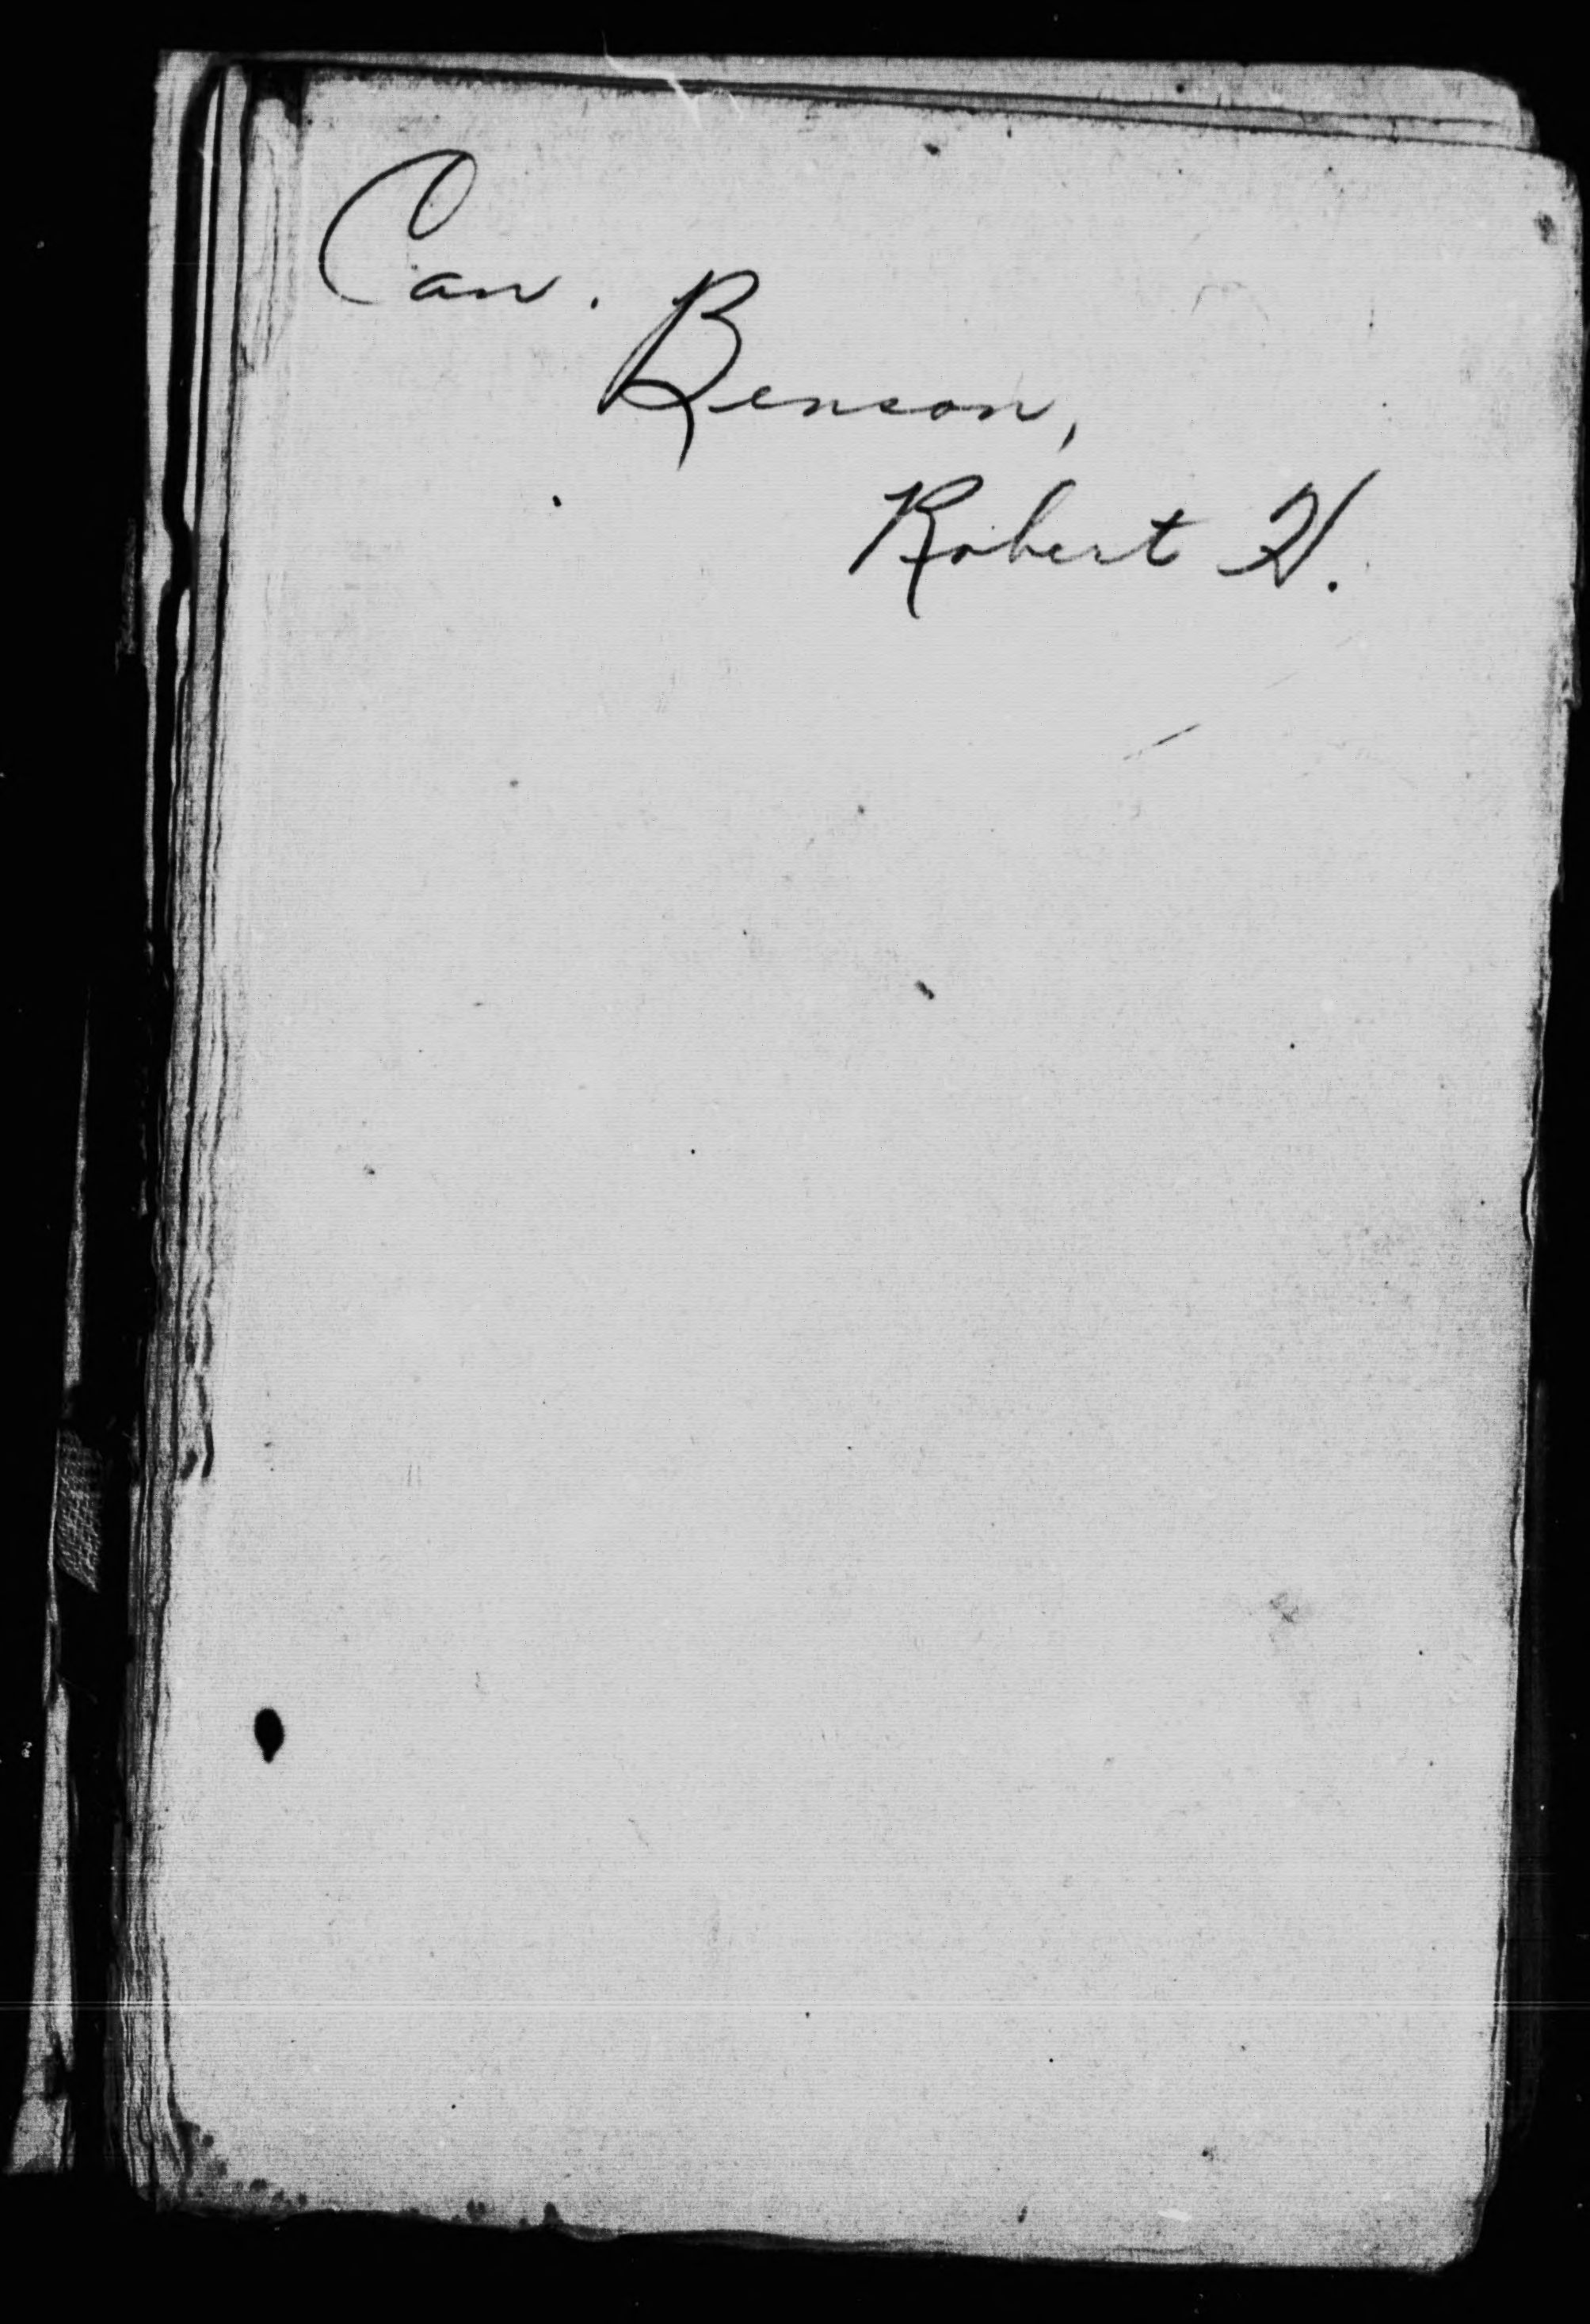 Can.
Benson,
Robert H.